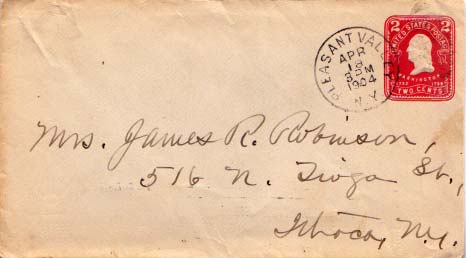 PLEASANT VALLEY
APR
18
3 PM
1904
N.Y.
2 2
UNITED STATES POSTAGE
WASHINGTON
TWO CENTS
Mrs. James R. Robinson,
516 N. Tioga St.,
Ithaca, N.Y.